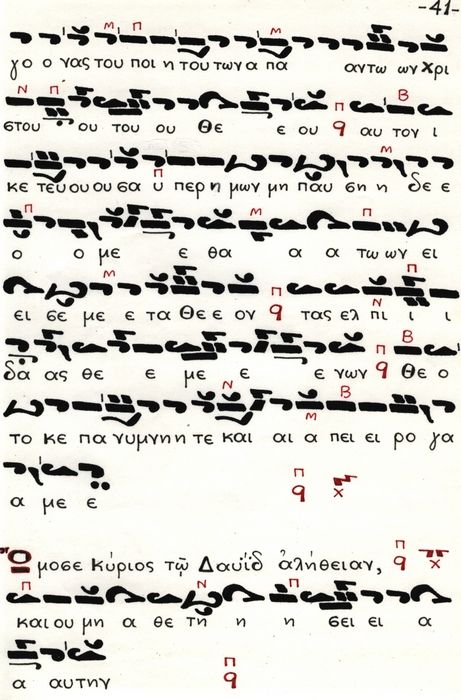 -41-
γο ο νας του ποι η του των α πα αν τω ων χρι
στου ου του ου Θε ε ου αυ τον ι
κε τευ ου ου σα υ περ η μων μη παυ ση η δε ε
ο ο με ε θα α α τω ων ει
ει σε με ε τα Θε ε ον τας ελ πι ι ι
δα ας θε ε με ε ε γων Θε ο
το κε πα νυμνη η τε και αι α πει ει ρο γα
α με ε
Ὤμοσε Κύριος τῷ Δαυΐδ ἀλήθειαν,
και ου μη α θε τη η η σει ει α
α αυτην